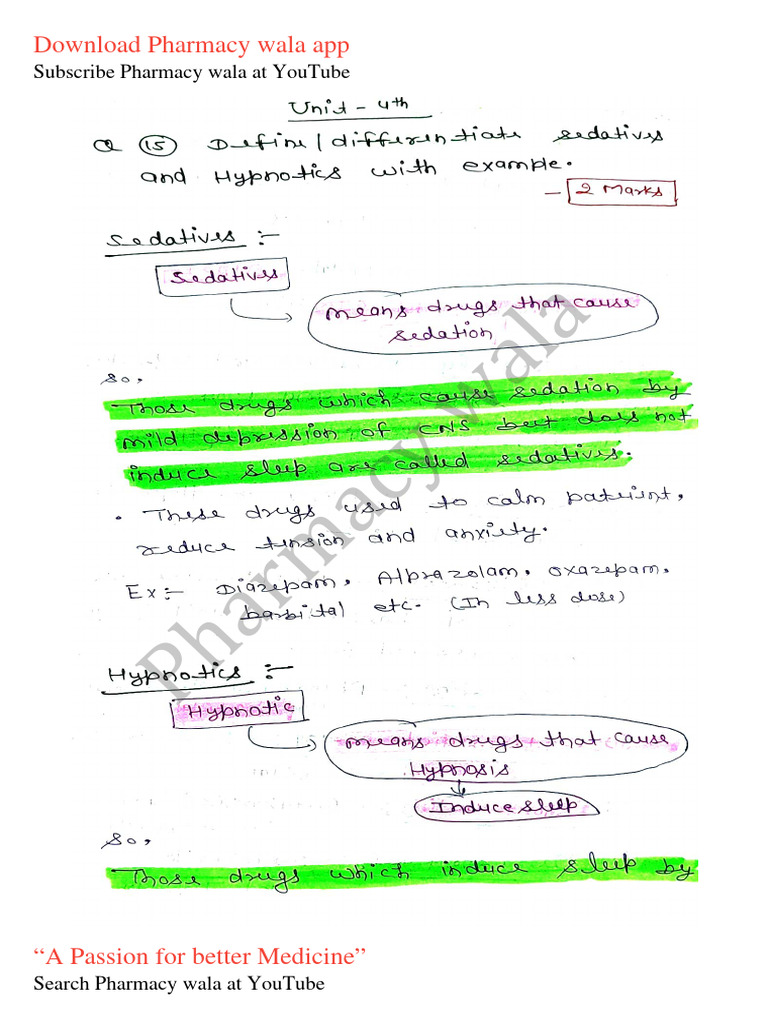 Download Pharmacy wala app
Subscribe Pharmacy wala at YouTube
Unit - 4th
Q (15) Define/differentiate sedatives
and Hypnotics with example.
- 2 Marks
Sedatives :-
Sedatives
means drugs that cause
sedation
So,
Those drugs which cause sedation by
mild depression of CNS but does not
induce sleep are called sedatives.
• These drugs used to calm patient,
reduce tension and anxiety.
Ex:- Diazepam, Alprazolam, Oxazepam,
barbital etc. (In less dose)
Pharmacy wala
Hypnotics :-
Hypnotic
means drugs that cause
Hypnosis
Induce sleep
So,
Those drugs which induce sleep by
“A Passion for better Medicine”
Search Pharmacy wala at YouTube